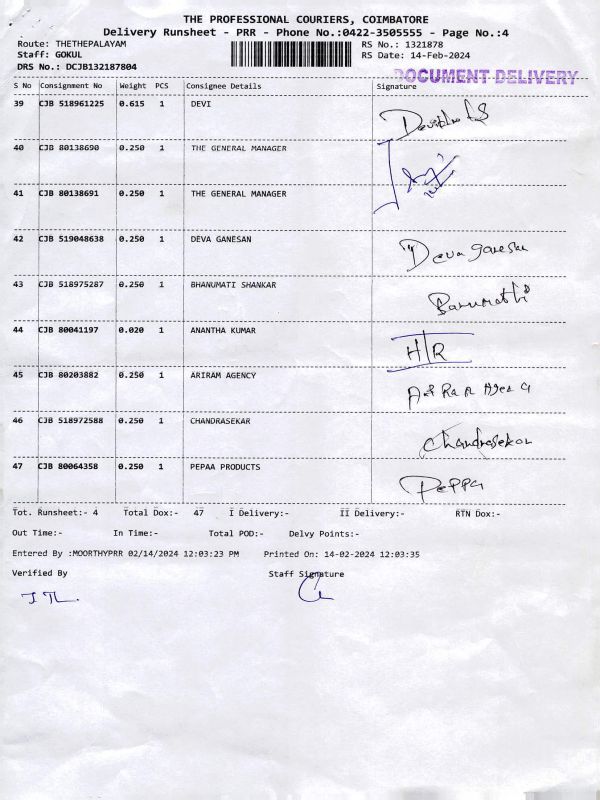 THE PROFESSIONAL COURIERS, COIMBATORE
Delivery Runsheet - PRR - Phone No.:0422-3505555 - Page No.:4
Route: THETHEPALAYAM RS No.: 1321878
Staff: GOKUL RS Date: 14-Feb-2024
DRS No.: DCJB132187804
DOCUMENT DELIVERY
S No Consignment No Weight PCS Consignee Details Signature
39 CJB 518961225 0.615 1 DEVI
40 CJB 80138690 0.250 1 THE GENERAL MANAGER
41 CJB 80138691 0.250 1 THE GENERAL MANAGER
42 CJB 519048638 0.250 1 DEVA GANESAN Deva ganesan
43 CJB 518975287 0.250 1 BHANUMATI SHANKAR Banumathi
44 CJB 80041197 0.020 1 ANANTHA KUMAR H/R
45 CJB 80203882 0.250 1 ARIRAM AGENCY
46 CJB 518972588 0.250 1 CHANDRASEKAR Chandrasekar
47 CJB 80064358 0.250 1 PEPAA PRODUCTS PePPa
Tot. Runsheet:- 4 Total Dox:- 47 I Delivery:- II Delivery:- RTN Dox:-
Out Time:- In Time:- Total POD:- Delvy Points:-
Entered By :MOORTHYPRR 02/14/2024 12:03:23 PM Printed On: 14-02-2024 12:03:35
Verified By Staff Signature